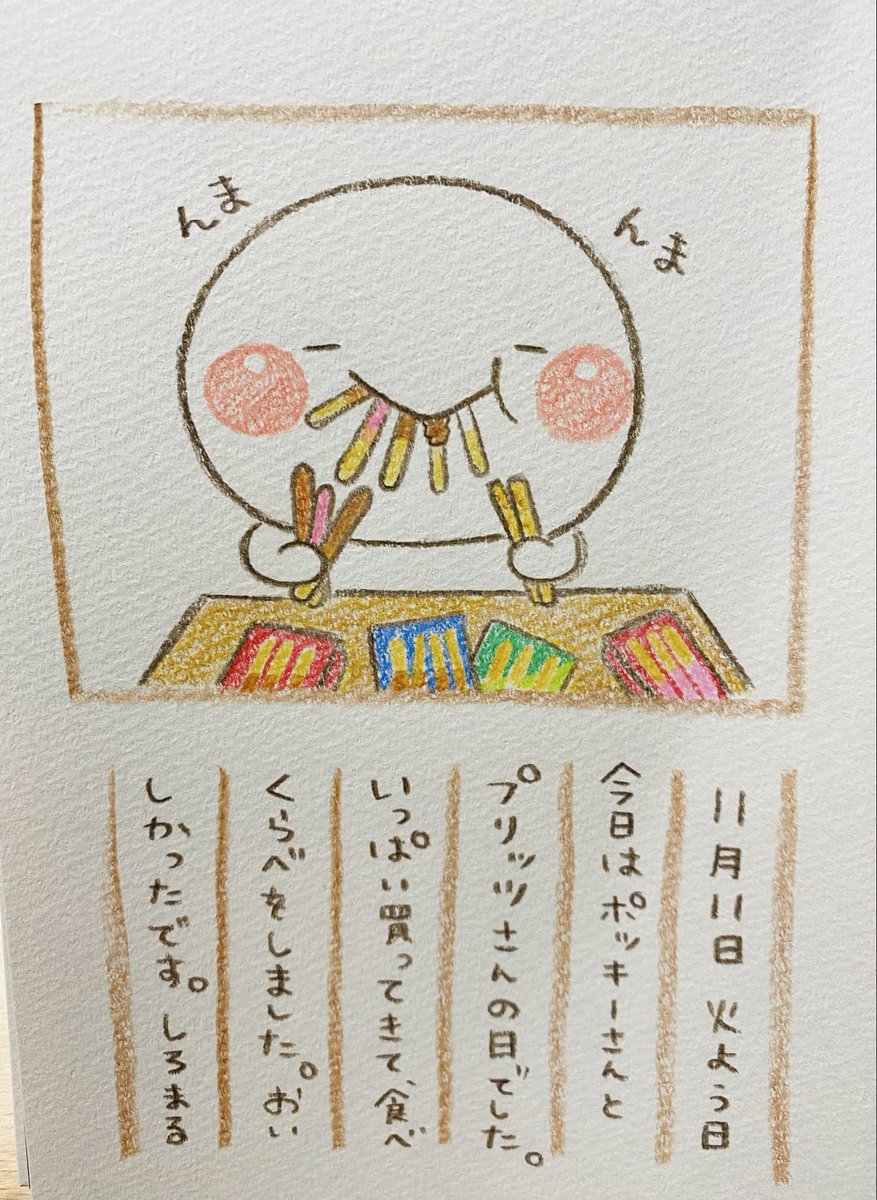 んま
んま
11月11日 火よう日
今日はポッキーさんと
プリッツさんの日でした。
いっぱい買ってきて、食べ
くらべをしました。おい
しかったです。しろまる